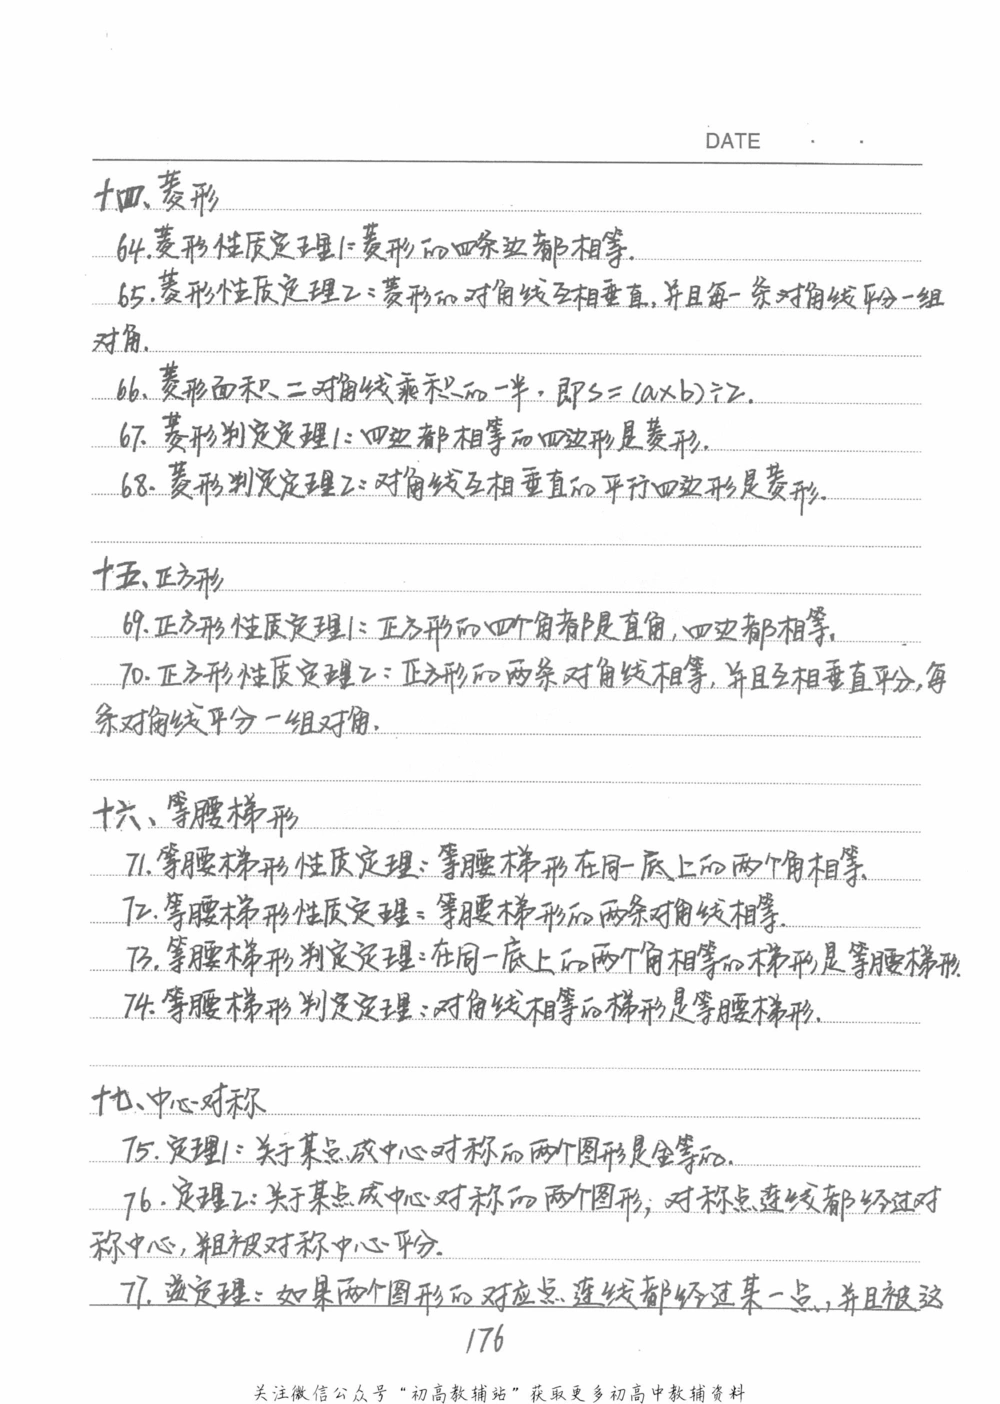 DATE · ·
十四、菱形
64.菱形性质定理1:菱形的四条边都相等.
65.菱形性质定理2:菱形的对角线互相垂直,并且每一条对角线平分一组
对角.
66、菱形面积、二对角线乘积的一半.即S=(a×b)÷2.
67.菱形判定定理1:四边都相等的四边形是菱形.
68.菱形判定定理2:对角线互相垂直的平行四边形是菱形.
十五、正方形
69.正方形性质定理1:正方形的四个角都是直角,四边都相等.
70.正方形性质定理2:正方形的两条对角线相等,并且互相垂直平分,每
条对角线平分一组对角.
十六、等腰梯形
71.等腰梯形性质定理:等腰梯形在同一底上的两个角相等.
72.等腰梯形性质定理:等腰梯形的两条对角线相等.
73.等腰梯形判定定理:在同一底上的两个角相等的梯形是等腰梯形.
74.等腰梯形判定定理:对角线相等的梯形是等腰梯形.
十七、中心对称
75.定理1:关于某点成中心对称的两个图形是全等的.
76.定理2:关于某点成中心对称的两个图形,对称点连线都经过对
称中心,并且被对称中心平分.
77.逆定理:如果两个图形的对应点连线都经过某一点,并且被这
176
关注微信公众号“初高教辅站”获取更多初高中教辅资料